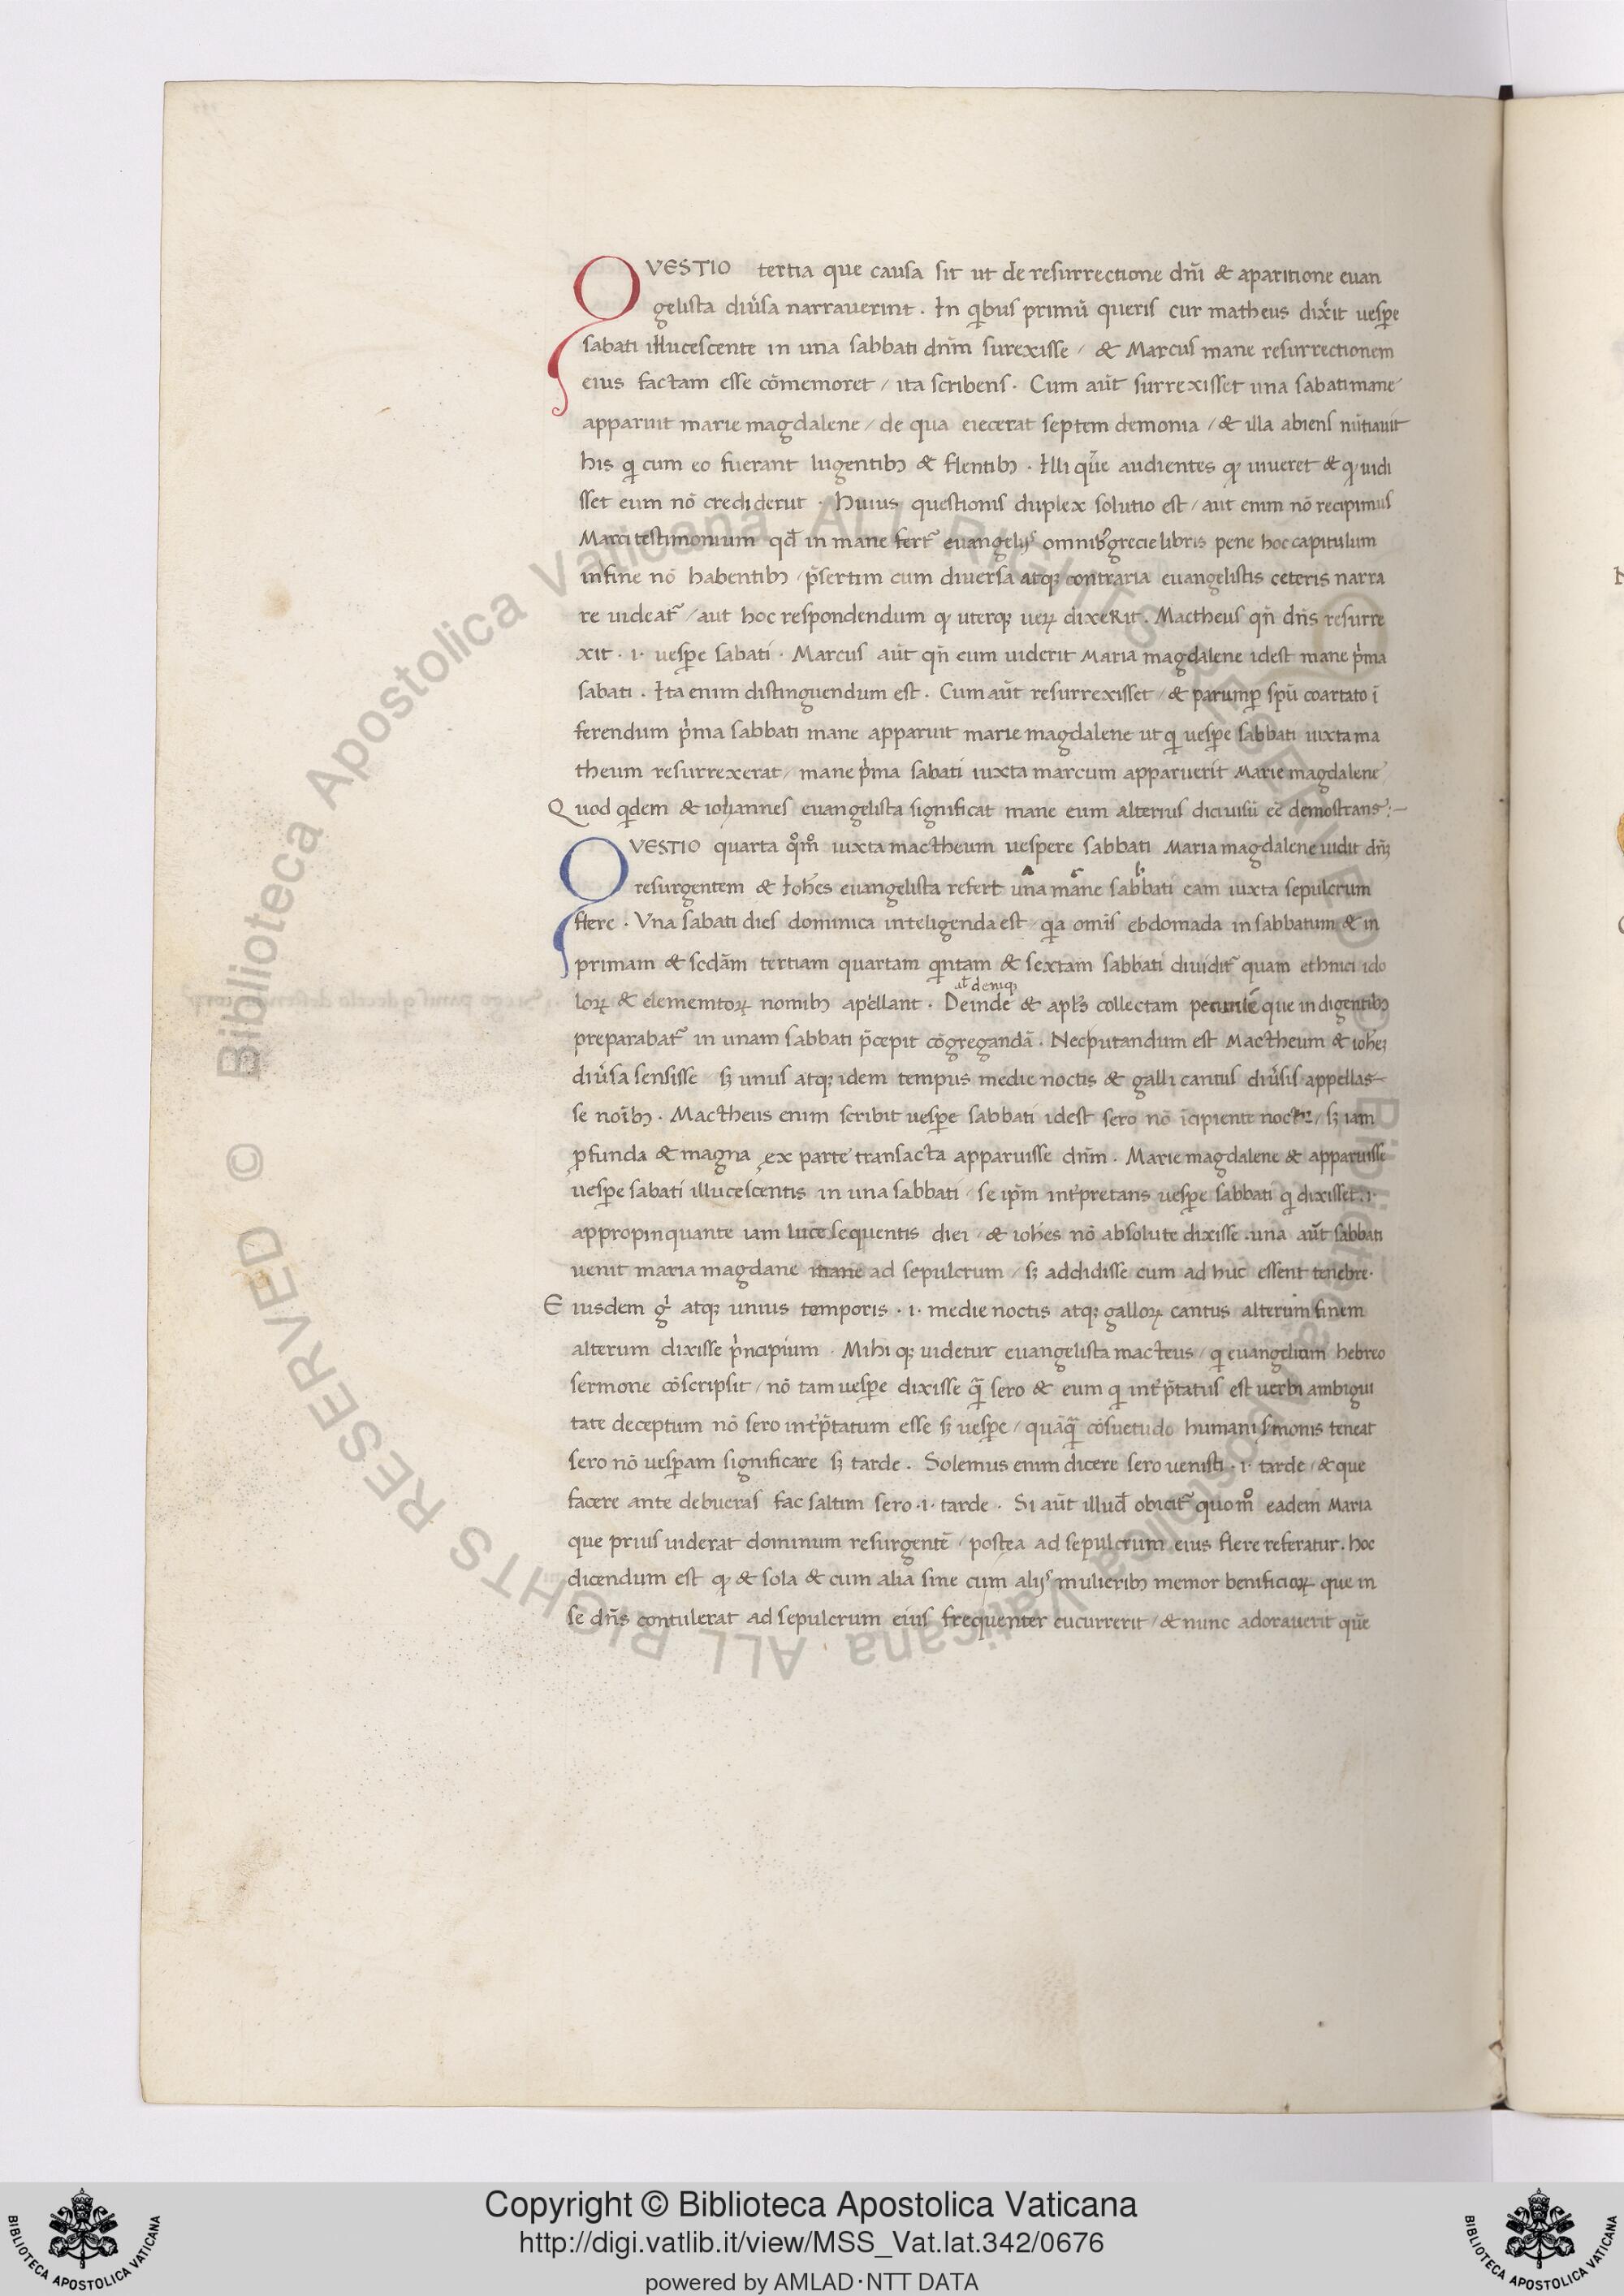 QVESTIO tertia que causa sit ut de resurrectione dñi & aparitione euan
gelista diũsa narrauerint . In qibus primũ queris cur matheus dixit uespe
sabati illucescente in una sabbati dnm̃ surexisse / & Marcus mane resurrectionem
eius factam esse cõmemoret / ita scribens . Cum aũt surrexisset una sabati mane
apparuit marie magdalene / de qua eiecerat septem demonia / & illa abiens nũtiauit
his qi cum eo fuerant lugentibꝫ & flentibꝫ . Illi qũe audientes ꝙ uiueret & ꝙ uidi
sset eum nõ crediderut . Huius questionis duplex solutio est / aut enim nõ recipimus
Marci testimonium qđ in mane fert᷑ euangelijs omnibꝰ grecie libris pene hoc capitulum
infine nõ habentibꝫ / p̃sertim cum diuersa atqꝫ contraria euangelistis ceteris narra
re uideat᷑ / aut hoc respondendum ꝙ uterqꝫ ueꝝ dixerit . Mactheus qñ dñs resurre
xit · i · uespe sabati · Marcus aũt qñ eum uiderit Maria magdalene idest mane pͥma
sabati . Ita enim distinguendum est . Cum aũt resurrexisset / & parumꝑ spũ coartato ĩ
ferendum pͥma sabbati mane apparuit marie magdalene ut qi uesꝑe sabbati iuxta ma
theum resurrexerat / mane pͥma sabati iuxta marcum apparuerit Marie magdalene
Quod qidem & iohannes euangelista significat mane eum alterius dici uisũ eẽ demostrans :–
QVESTIO quarta qͦmͦ iuxta mactheum uespere sabbati Maria magdalene uidit dñꝫ
resurgentem & Ioh̃es euangelista refert una mane sabbati eam iuxta sepulcrum
flere . Vna sabati dies dominica inteligenda est / qia omĩs ebdomada in sabbatum & in
primam & scdãm tertiam quartam qintam & sextam sabbati diuidit᷑ quam ethnici ido
loꝝ & elememtoꝝ nomibꝫ apellant . Deinde & apl̃s collectam pecunie que indigentibꝫ
ał deniqꝫ
preparabat᷑ in unam sabbati p̃cepit cõgregandã . Nec putandum est Mactheum & ioh̃eꝫ
diũsa sensisse sꝫ unus atqꝫ idem tempus medie noctis & galli cantus diũsis appellas
se noĩbꝫ . Mactheus enim scribit uesꝑe sabbati idest sero nõ ĩcipiente nocte / sꝫ iam
ꝓfunda & magna ex parte transacta apparuisse dnm̃ . Marie magdalene & apparuisse
uesꝑe sabati illucescentis in una sabbati / se ip̃m int̃pretans uesꝑe sabbati qi dixisset . i ·
appropinquante iam luce sequentis diei / & ioh̃es nõ absolute dixisse . una aũt sabbati
uenit maria magdane mane ad sepulcrum / sꝫ addidisse cum ad huc essent tenebre .
Eiusdem gͥ atqꝫ unius temporis · i · medie noctis atqꝫ galloꝝ cantus alterum finem
alterum dixisse pͥncipium . Mihi qꝫ uidetur euangelista macteus / qi euangelium hebreo
sermone cõscripsit / nõ tam uesꝑe dixisse q̃ sero & eum qi int̃p̃tatus est uerbi ambigui
tate deceptum nõ sero int̃p̃tatum esse sꝫ uesꝑe / quãq̃ cõsuetudo humani sm̃onis teneat
sero nõ uesꝑam significare sꝫ tarde . Solemus enim dicere sero uenisti · i · tarde / & que
facere ante debueras fac saltim sero · i · tarde . Si aũt illuđ obicit᷑ quomͦ eadem Maria
que prius uiderat dominum resurgentẽ / postea ad sepulcrum eius flere referatur . hoc
dicendum est ꝙ & sola & cum alia sine cum alijs mulieribꝫ memor benificioꝝ que in
se dñs contulerat ad sepulcrum eius frequenter cucurrerit / & nunc adorauerit quẽ
Copyright © Biblioteca Apostolica Vaticana
http://digi.vatlib.it/view/MSS_Vat.lat.342/0676
powered by AMLAD·NTT DATA
BIBLIOTECA APOSTOLICA VATICANA
BIBLIOTECA APOSTOLICA VATICANA
© Biblioteca Apostolica Vaticana ALL RIGHTS RESERVED © Biblioteca Apostolica Vaticana ALL RIGHTS RESERVED